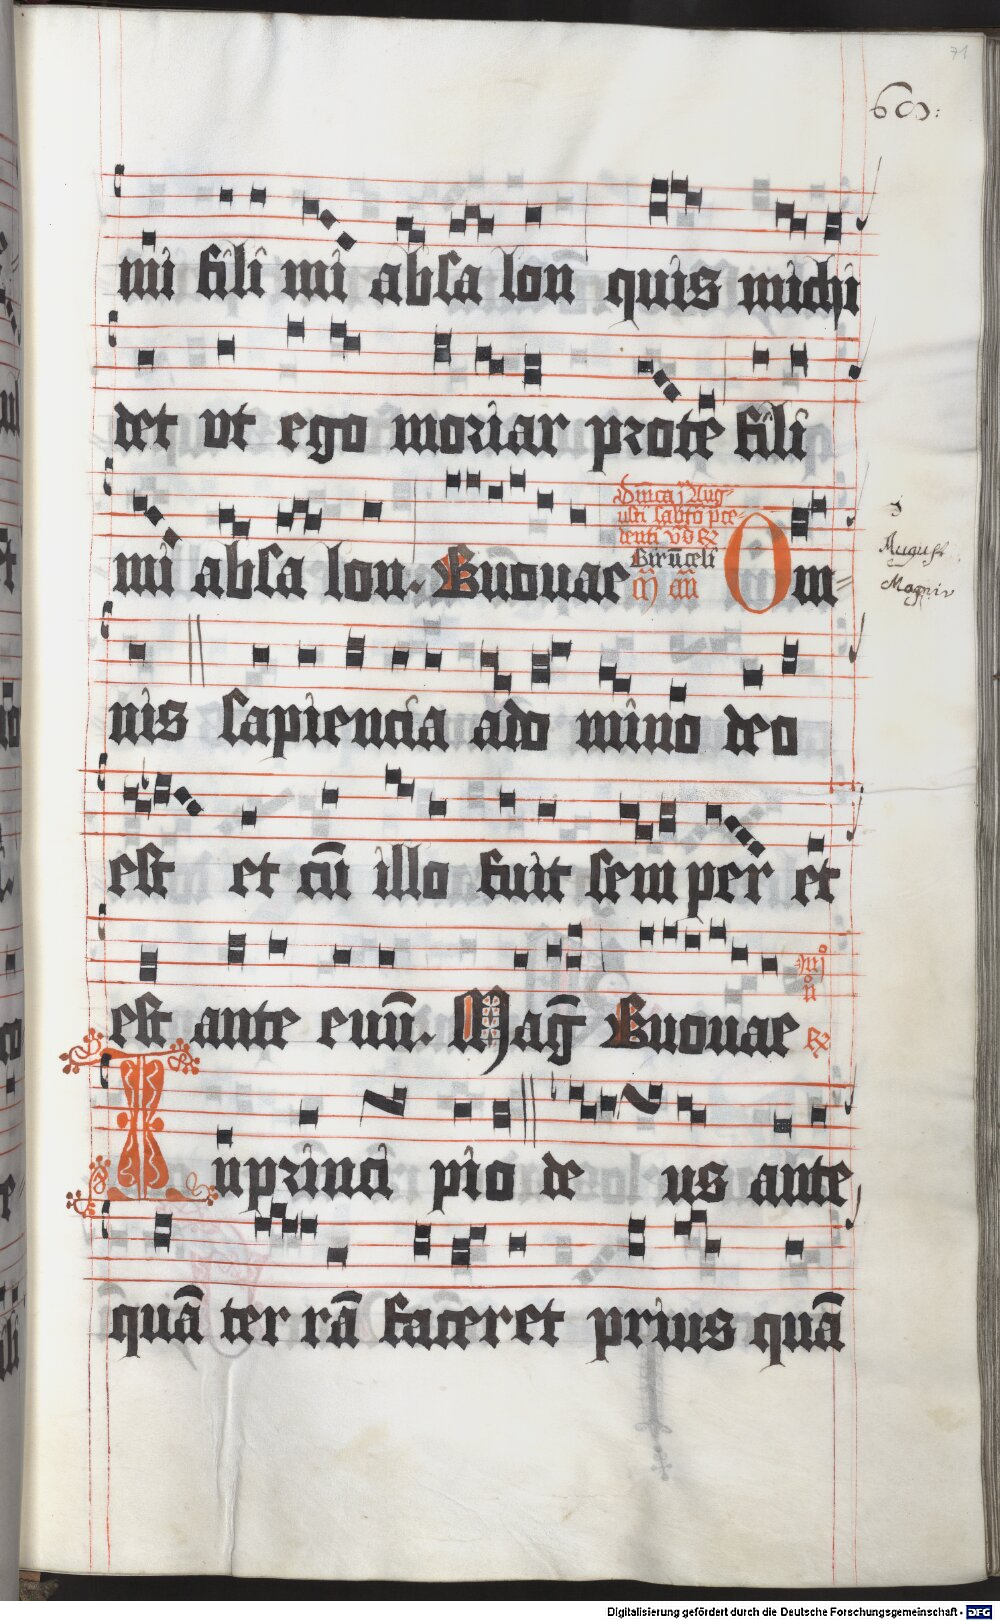 71
mi fili mi absa lon quis michi
det vt ego moriar prote fili
mi absa lon. Euouae
Dm̄ca j Aug-
usti sabb̄o pre-
denti
Om
August
Magnir
nis sapiencia ado mino deo
est et cū illo fuit semper et
est ante euū. Mag̅ Euouae
Inprinci pio de us ante
quā ter rā faceret prius quā
Digitalisierung gefördert durch die Deutsche Forschungsgemeinschaft - DFG